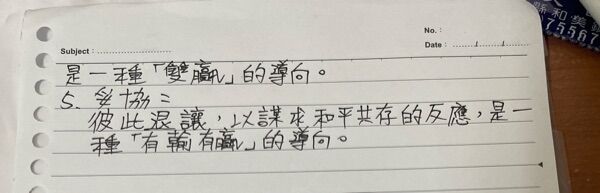 No:
Subject:
Date:
是一種「雙贏」的導向。
5. 妥協：
彼此退讓，以謀求和平共存的反應，是一
種「有輸有贏」的導向。
縣和美
75567